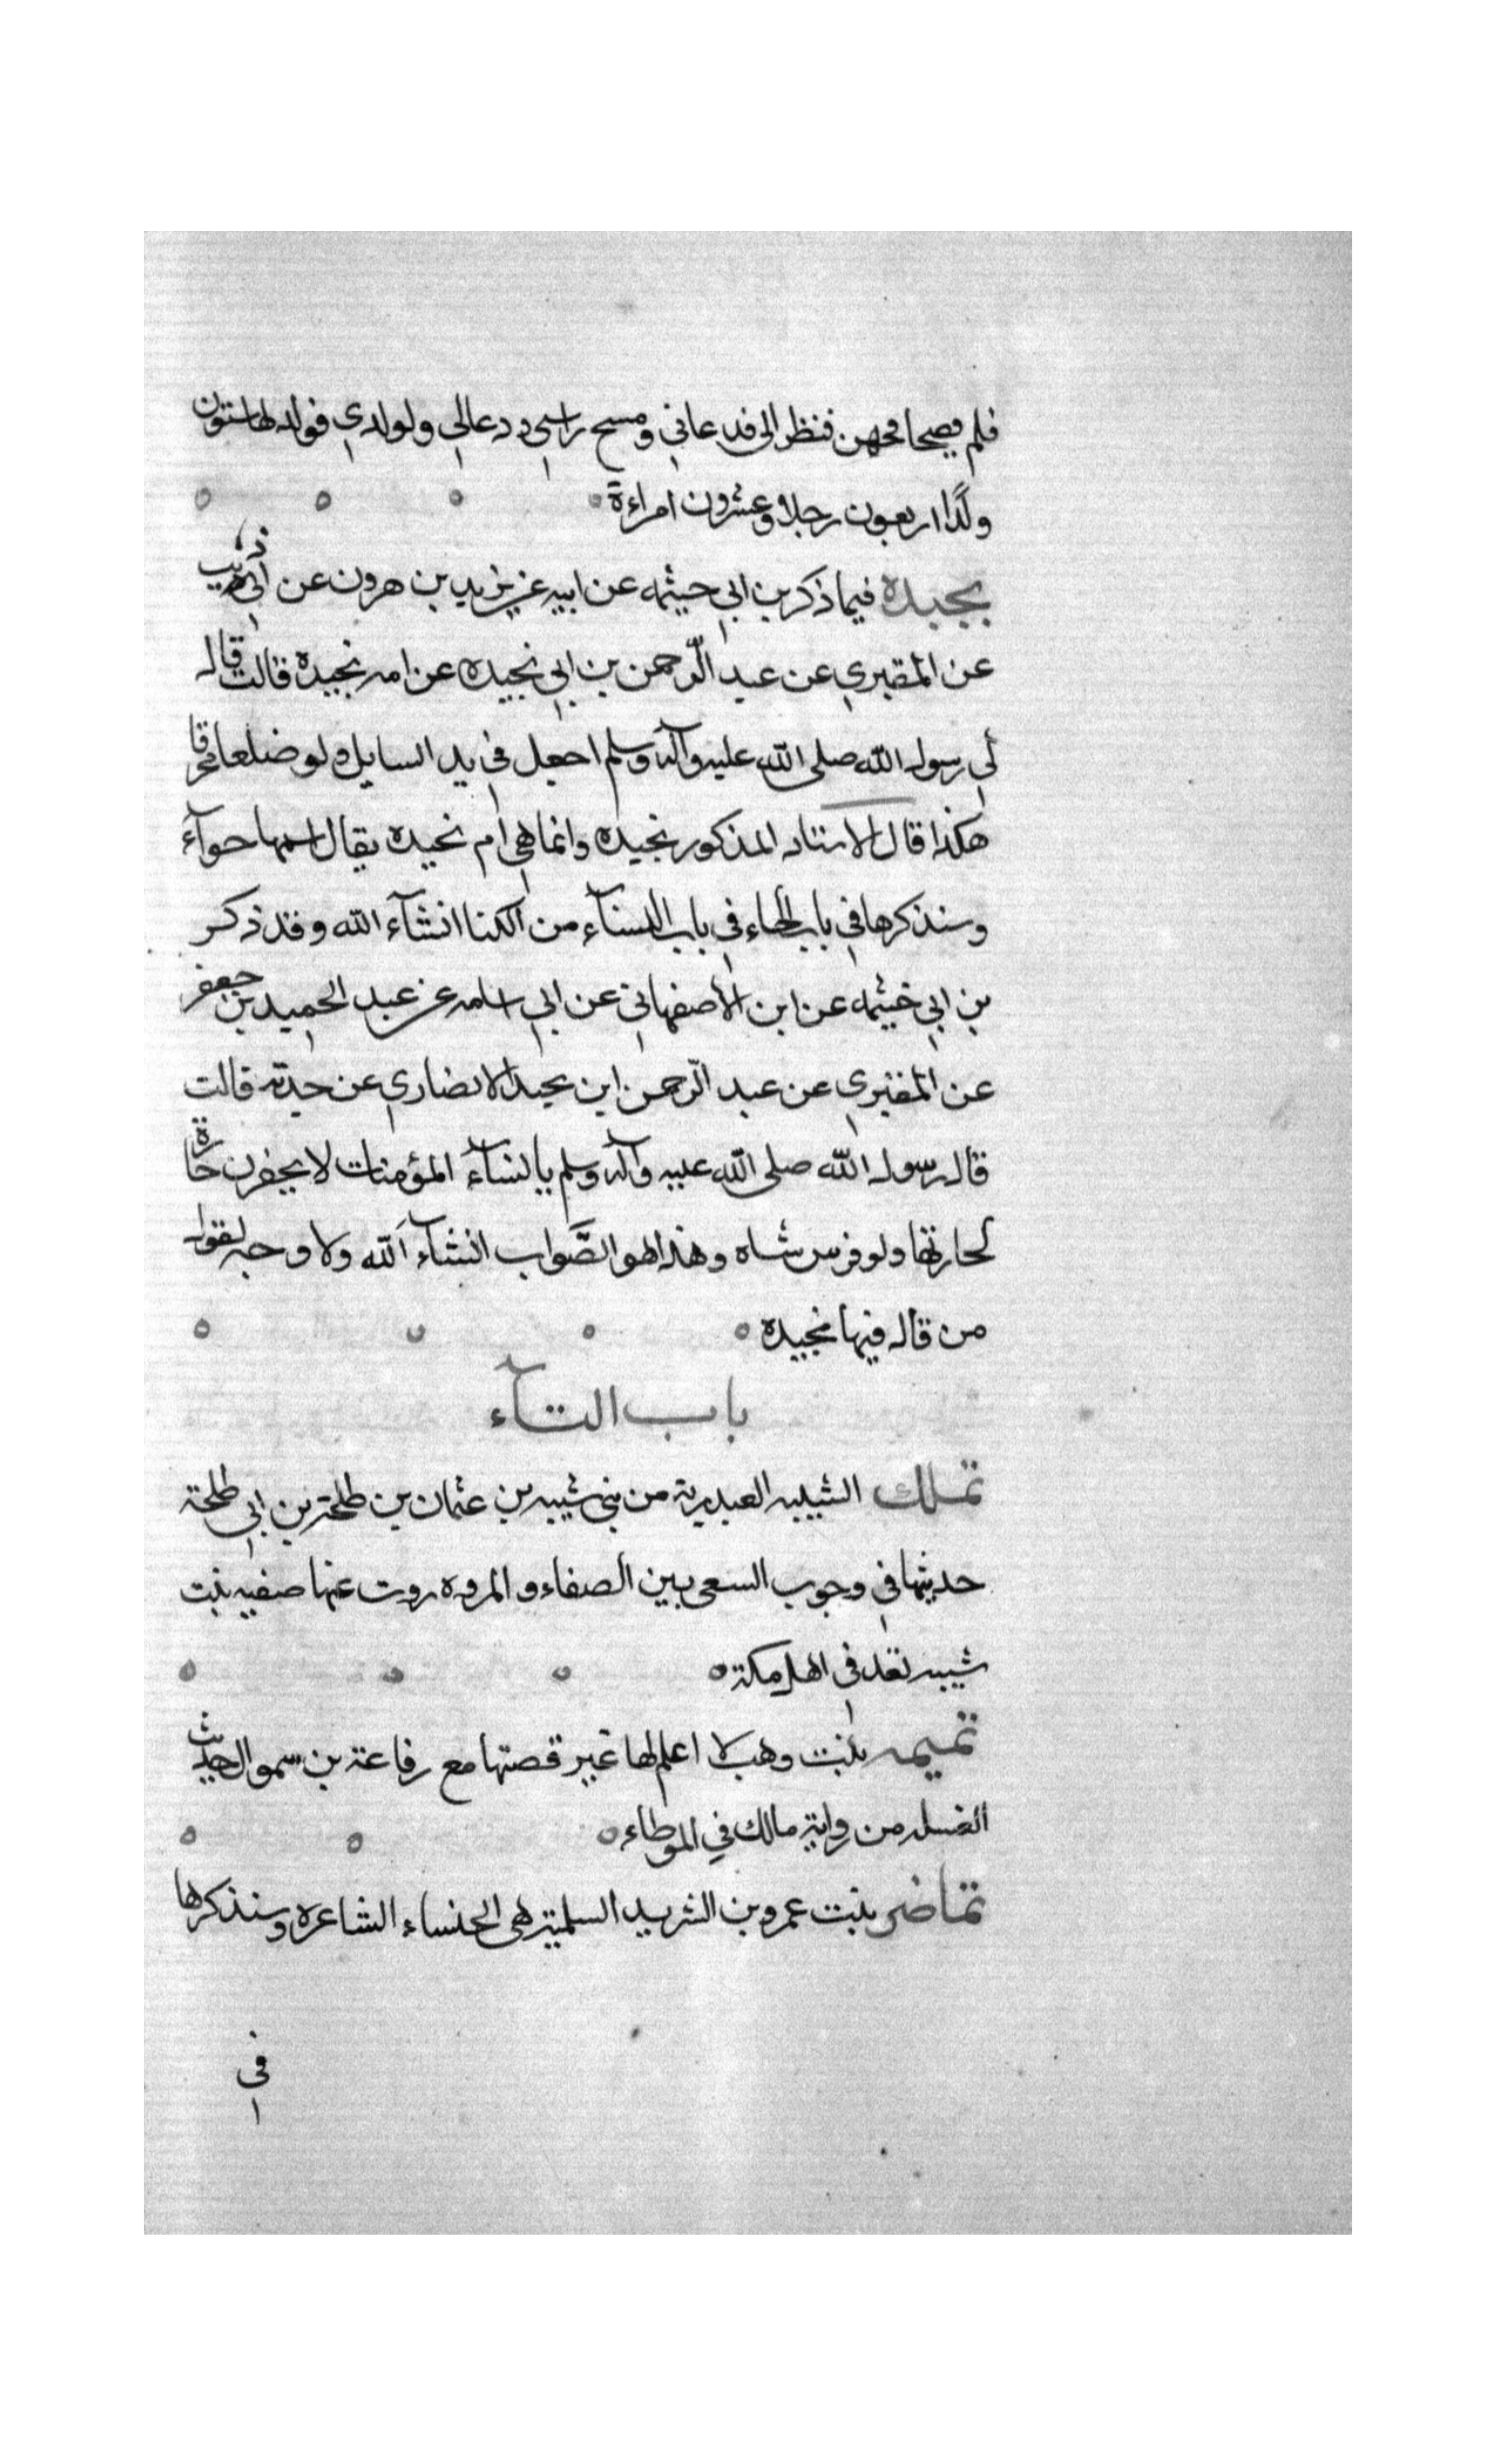 فلم يصحا فحهن فنظر الى فدعاني ومسح راسي ودعالي ولولدي فولد لها ستون
ولدًا اربعون رجلا وعشرون امراءة
بجيده فيما ذكر بن ابي حيثمه عن ابيه عن يزيد بن هرون عن ابي ذيب
عن المقبري عن عبد الرحمن بن ابي نجيده عن امه نجيدة قالت قال
لي رسول الله صلى الله عليه وآله وسلم اجعل في يد السايل ولو ضلعا محرقا
هكذا قال الاستاد المذكور نجيده وانما هي ام نجيده يقال اسمها حوآء
وسنذكرها في باب الحاء في باب النسآء من الكنا انشآء الله وقد ذكر
بن ابي خيثمه عن ابن الأصفهاني عن ابي اسامه عن عبد الحميد بن جعفر
عن المقبري عن عبد الرحمن ابن بجيد الانصاري عن جدته قالت
قال رسول الله صلى الله عليه وآله وسلم يا نسآء المؤمنات لا يحقرن جارة
لجارتها ولو فرسن شاه وهذا هو الصَّواب انشآء الله ولا وجه لقول
من قال فيها نجيده
باب التآء
تملك الشيبيه العبدرية من بني شيبه بن عثمان بن طلحة بن ابي طلحة
حديثها في وجوب السعي بين الصفاء والمروه روت عنها صفيه بنت
شيبه تعد في اهل مكة
تميمه بنت وهب لا اعلم لها غير قصتها مع رفاعة بن سموال حديث
العسل من رواية مالك في الموطاء
تماضر بنت عمرو بن الشريد السلمية هي الخنساء الشاعره وسنذكرها
في